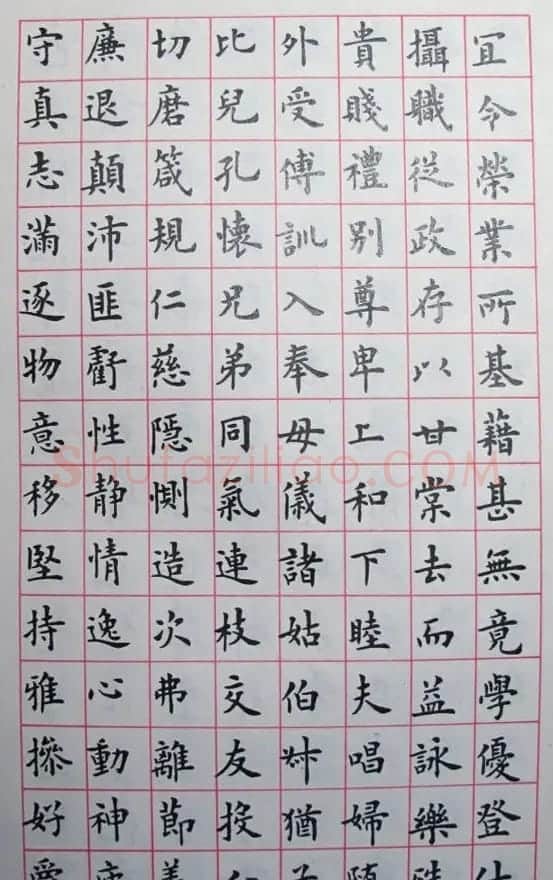 冝令榮業所基藉甚無竟學優登
攝職從政存以甘棠去而益詠樂
貴賤禮別尊卑上和下睦夫唱婦
外受傅訓入奉母儀諸姑伯叔猶
比兒孔懷兄弟同氣連枝交友投
切磨箴規仁慈隱惻造次弗離節
廉退顛沛匪虧性静情逸心動神
守真志滿逐物意移堅持雅操好
Shufaziliao.COM